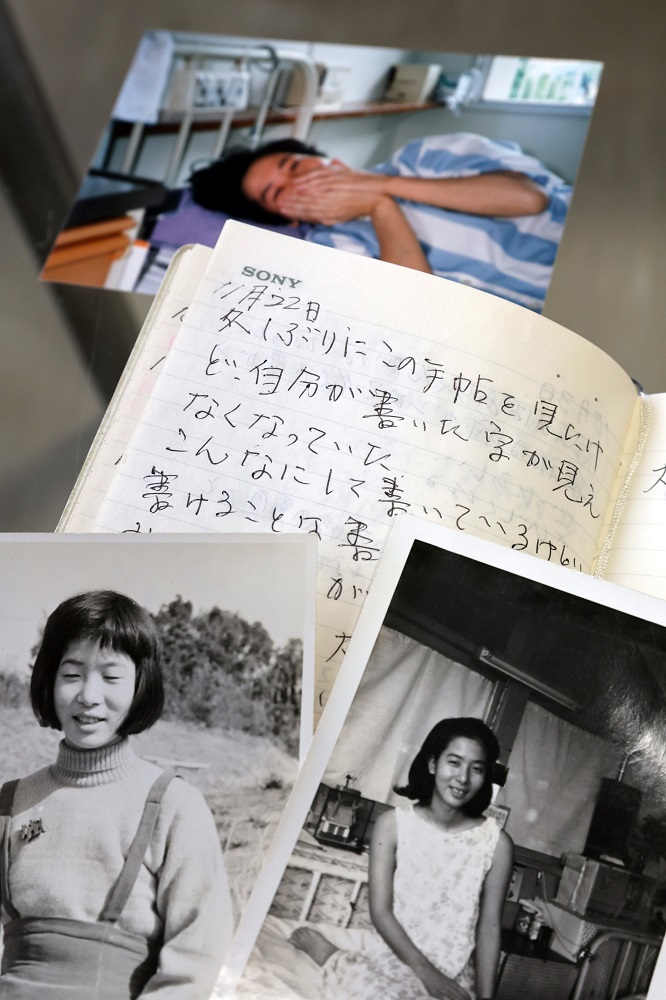 SONY
11月22日
久しぶりにこの手帖を見たけ
ど、自分が書いた字が見え
なくなっていた
こんなにして書いているけれど
書けることは書
が